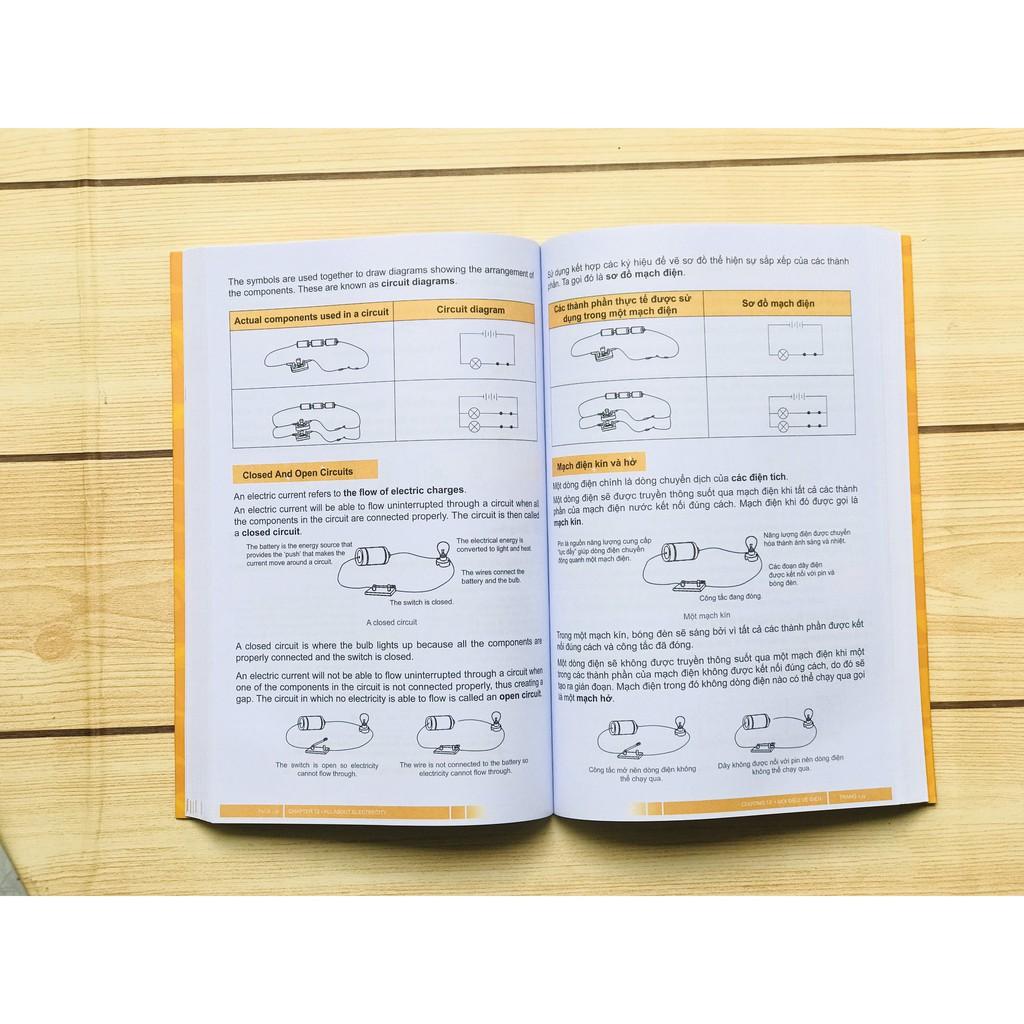 The symbols are used together to draw diagrams showing the arrangement of
the components. These are known as circuit diagrams.
Actual components used in a circuit
Circuit diagram
Closed And Open Circuits
An electric current refers to the flow of electric charges.
An electric current will be able to flow uninterrupted through a circuit when all
the components in the circuit are connected properly. The circuit is then called
a closed circuit.
The battery is the energy source that
provides the 'push' that makes the
current move around a circuit.
The electrical energy is
converted to light and heat.
The wires connect the
battery and the bulb.
The switch is closed.
A closed circuit
A closed circuit is where the bulb lights up because all the components are
properly connected and the switch is closed.
An electric current will not be able to flow uninterrupted through a circuit when
one of the components in the circuit is not connected properly, thus creating a
gap. The circuit in which no electricity is able to flow is called an open circuit.
The switch is open so electricity
cannot flow through.
The wire is not connected to the battery so
electricity cannot flow through.
CHAPTER 12 • ALL ABOUT ELECTRICITY
Sử dụng kết hợp các ký hiệu để vẽ sơ đồ thể hiện sự sắp xếp của các thành
phần. Ta gọi đó là sơ đồ mạch điện.
Các thành phần thực tế được sử
dụng trong một mạch điện
Sơ đồ mạch điện
Mạch điện kín và hở
Một dòng điện chính là dòng chuyển dịch của các điện tích.
Một dòng điện sẽ được truyền thông suốt qua mạch điện khi tất cả các thành
phần của mạch điện nước kết nối đúng cách. Mạch điện khi đó được gọi là
mạch kín.
Pin là nguồn năng lượng cung cấp
"lực đẩy" giúp dòng điện chuyển
động quanh một mạch điện.
Năng lượng điện được chuyển
hóa thành ánh sáng và nhiệt.
Các đoạn dây điện
được kết nối với pin và
bóng đèn.
Công tắc đang đóng.
Một mạch kín
Trong một mạch kín, bóng đèn sẽ sáng bởi vì tất cả các thành phần được kết
nối đúng cách và công tắc đã đóng.
Một dòng điện sẽ không được truyền thông suốt qua một mạch điện khi một
trong các thành phần của mạch điện không được kết nối đúng cách, do đó sẽ
tạo ra gián đoạn. Mạch điện trong đó không dòng điện nào có thể chạy qua gọi
là một mạch hở.
Công tắc mở nên dòng điện không
thể chạy qua.
Dây không được nối với pin nên dòng điện
không thể chạy qua.
CHƯƠNG 12 • MỌI ĐIỀU VỀ ĐIỆN
TRANG